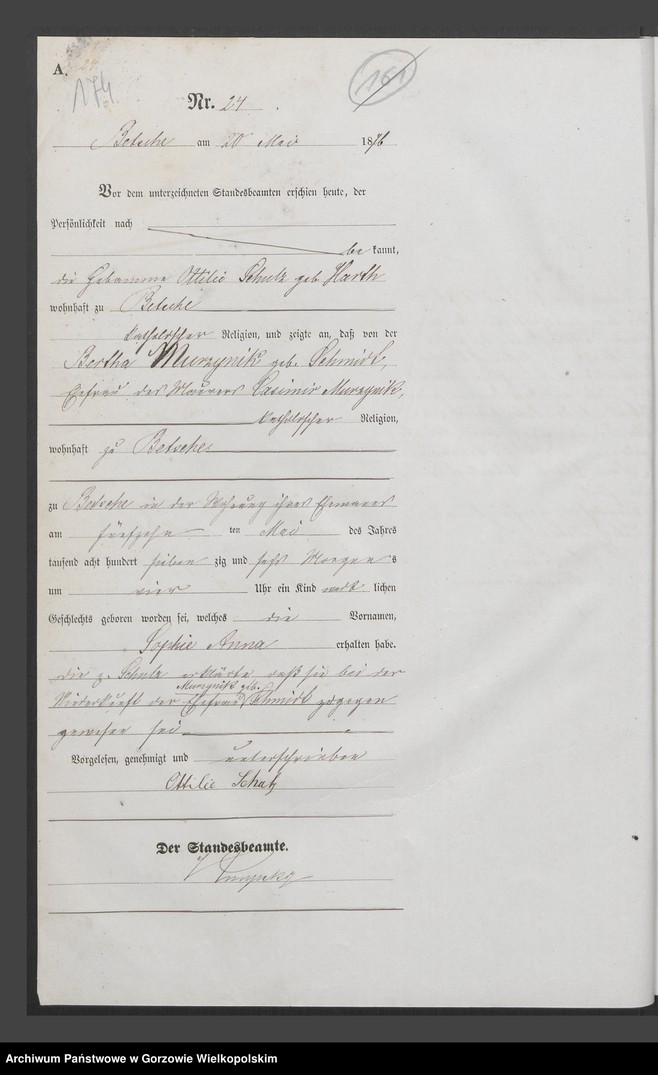 A.
174.
161
Nr. 24
Betsche am 20 Mai 1876
Vor dem unterzeichneten Standesbeamten erschien heute, der
Persönlichkeit nach
be kannt,
die Hebamme Ottilie Schulz geb. Harth
wohnhaft zu Betsche
katholischer Religion, und zeigte an, daß von der
Bertha Murzynik geb. Schmidt,
Ehefrau des Maurers Casimir Murzynik,
katholischer Religion,
wohnhaft zu Betsche
zu Betsche in der Wohnung ihres Ehemannes
am fünfzehn ten Mai des Jahres
tausend acht hundert sieben zig und sechs Morgen s
um vier Uhr ein Kind weib lichen
Geschlechts geboren worden sei, welches die Vornamen,
Sophie Anna erhalten habe.
Die p. Schulz erklärte, daß sie bei der
Murzynik geb.
Niederkunft der Ehefrau Schmidt zugegen
gewesen sei
Vorgelesen, genehmigt und unterschrieben
Ottilie
Der Standesbeamte.
Archiwum Państwowe w Gorzowie Wielkopolskim